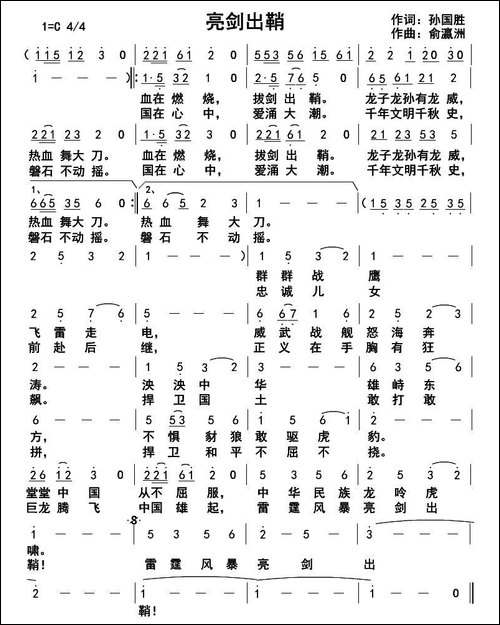 亮剑出鞘
1=C 4/4
作词：孙国胜
作曲：俞瀛洲
( 1 1 5 1 2 3 2 0 | 2 2 1 6 1 2 0 | 5 5 3 5 6 1 5 5 | 2 2 1 2 0 3 0 |
1 - - ) ‖: 1·5 3 2 1 0 | 2·5 7 6 5 0 | 6 5 6 1 2 1 2 0 |
血在 燃 烧， 拔剑 出 鞘。 龙子龙孙有龙 威，
国在 心 中， 爱涌 大 潮。 千年文明千秋 史，
2 2 1 2 3 2 0 | 1·5 3 2 1 0 | 2·5 7 6 5 0 | 6 5 6 1 2 1 2 0 |
热血 舞大 刀。 血在 燃 烧， 拔剑 出 鞘。 龙子龙孙有龙 威，
磐石 不动 摇。 国在 心 中， 爱涌 大 潮。 千年文明千秋 史，
1、 2、
6 6 5 3 5 5 0 :‖ 6 6 5 2 | 1 - - - | ( 1 5 3 5 1 5 3 5 |
热血 舞大 刀。 热 血 舞 大 刀。
磐石 不动 摇。 磐 石 不 动 摇。
2 5 3 2 | 1 - - - ) | 1 5 3 2 | 1 - - - |
群 群 战 鹰
忠 诚 儿 女
2 5 7 6 | 5 - - - | 6 6 7 1 6 | 5 6 2 3 |
飞 雷 走 电， 威 武 战 舰 怒 海 奔
前 赴 后 继， 正 义 在 手 胸 有 狂
2 - - - | 1 5 3 2 | 1 - - - | 2 5 4 3 |
涛。 泱 泱 中 华 雄 峙 东
飙。 捍 卫 国 土 敢 打 敢
6 - - - | 5 5 3 5 6 | 1 2 5 6 1 | 2 - - - |
方， 不 惧 豺 狼 敢 驱 虎 豹。
拼， 捍 卫 和 平 不 屈 不 挠。
2 6 1 2 3 0 | 2 2 1 6 1 2 0 | 5 3 5 6 | 1 2 3 2 |
堂堂 中 国 从不 屈 服， 中 华 民 族 龙 吟 虎
巨龙 腾 飞 中国 雄 起， 雷 霆 风 暴 亮 剑 出
1 - - - | 5 3 5 6 | 1 2 3 - | 2 - - - |
啸。
鞘！ 雷 霆 风 暴 亮 剑 出
2 - - 0 | 1 - - - | 1 - - - | 1 - - 0 ‖
鞘！